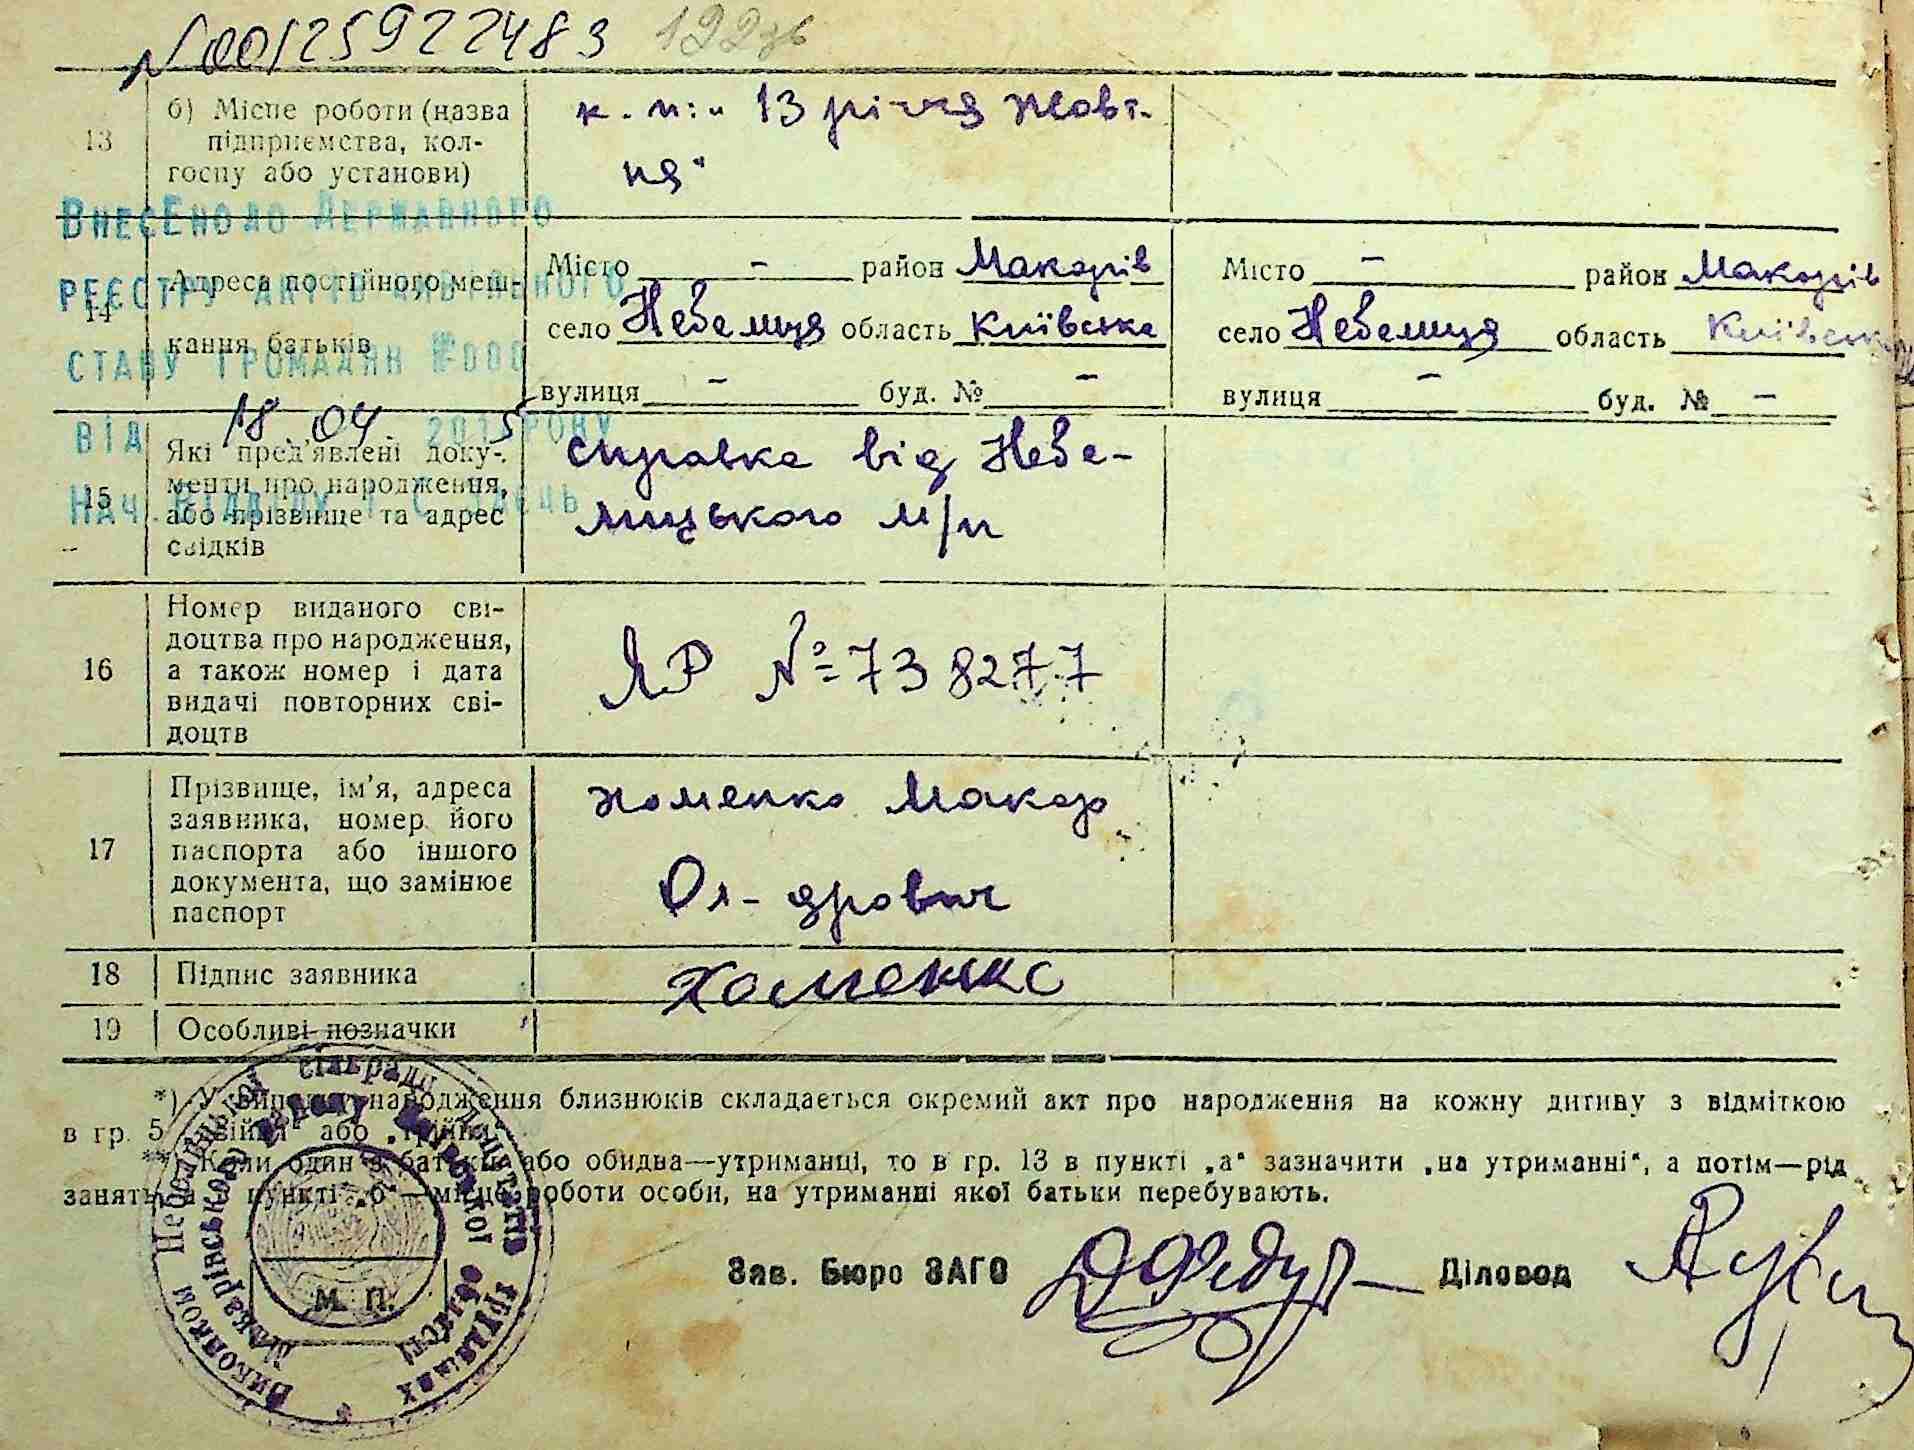 N00125922483 122зв
13
б) Місце роботи (назва
підприємства, кол-
госпу або установи)
к. п: „ 13 річчя Жовт-
ня"
Внесено до Державного
реєстру актів цивільного
стану громадян № 000
від 18. 04. 2015 року
Нач. відділу
14
Адреса постійного меш-
кання батьків
Місто – район Макарів
село Небелиця область Київська
вулиця – буд. № –
Місто – район Макарів
село Небелиця область Київськ
вулиця – буд. № –
15
Які пред'явлені доку-
менти про народження,
або прізвище та адрес
свідків
справка від Небе-
лицького м/п
16
Номер виданого сві-
доцтва про народження,
а також номер і дата
видачі повторних сві-
доцтв
ЯР № 738277
17
Прізвище, ім'я, адреса
заявника, номер його
паспорта або іншого
документа, що замінює
паспорт
Хоменко Макар
Ол-дрович
18
Підпис заявника
Хоменко
19
Особливі позначки
*) У випадку народження близнюків складається окремий акт про народження на кожну дитину з відміткою
в гр. 5 „двійня" або „трійня".
** Коли один з батьків або обидва—утриманці, то в гр. 13 в пункті „а" зазначити „на утриманні", а потім—рід
занять, а в пункті „б"—місце роботи особи, на утриманні якої батьки перебувають.
Виконком Небелицької сільради депутатів трудящих
Макарівського району Київської області
М. П.
Зав. Бюро ЗАГС
Діловод